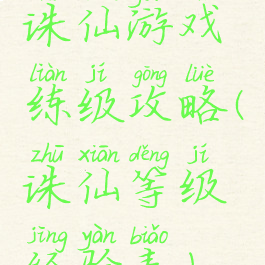 诛仙游戏
liàn jí gōng lüè
练级攻略(
zhū xiān děng jí
诛仙等级
jīng yàn biǎo
经验表)